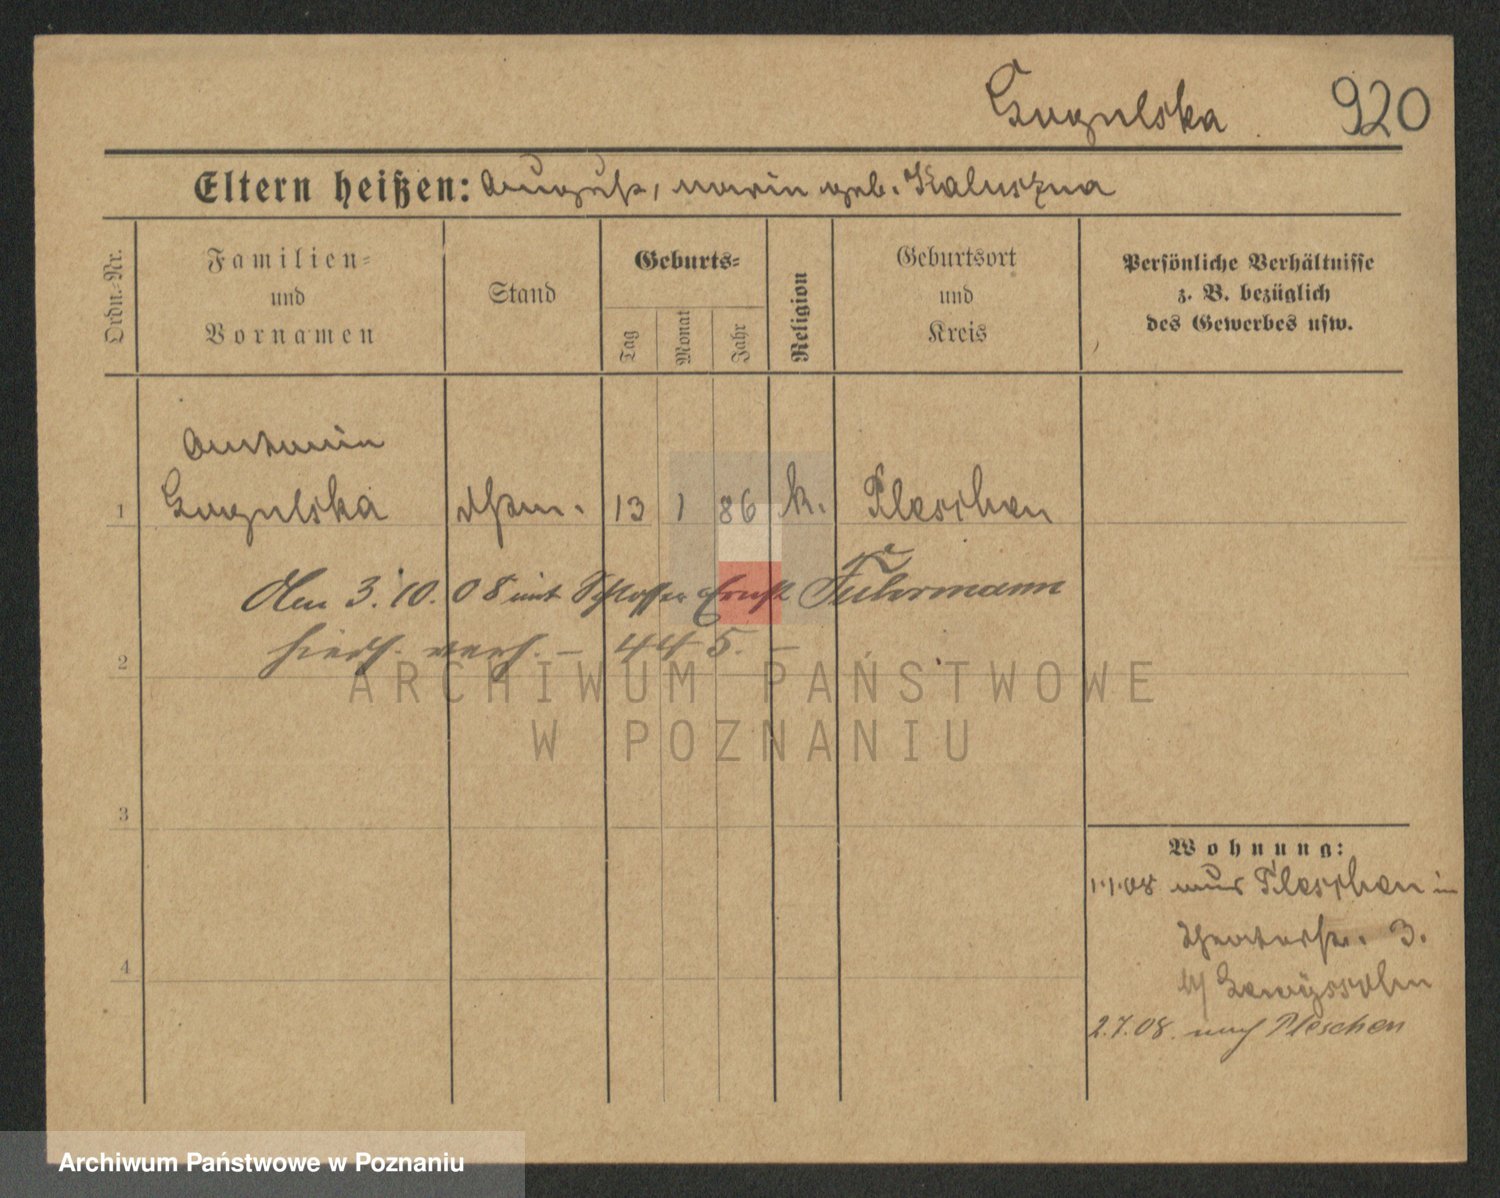 Gugulska 920
Eltern heißen: August, Marie geb. Kaluszna
Ordn.-Nr.
Familien-
und
Vornamen
Stand
Geburts-
Tag
Monat
Jahr
Religion
Geburtsort
und
Kreis
Persönliche Verhältnisse
z. B. bezüglich
des Gewerbes usw.
Antonie
1 Gugulska 13 1 86 k. Pleschen
3. 10. 08 mit Schlosser Ernst Fuhrmann
2 hierh. verh. – 445. –
ARCHIWUM PAŃSTWOWE
W POZNANIU
3
Wohnung:
1.1.08 aus Pleschen in
Theaterstr. 3.
4
2.7.08. nach Pleschen
Archiwum Państwowe w Poznaniu